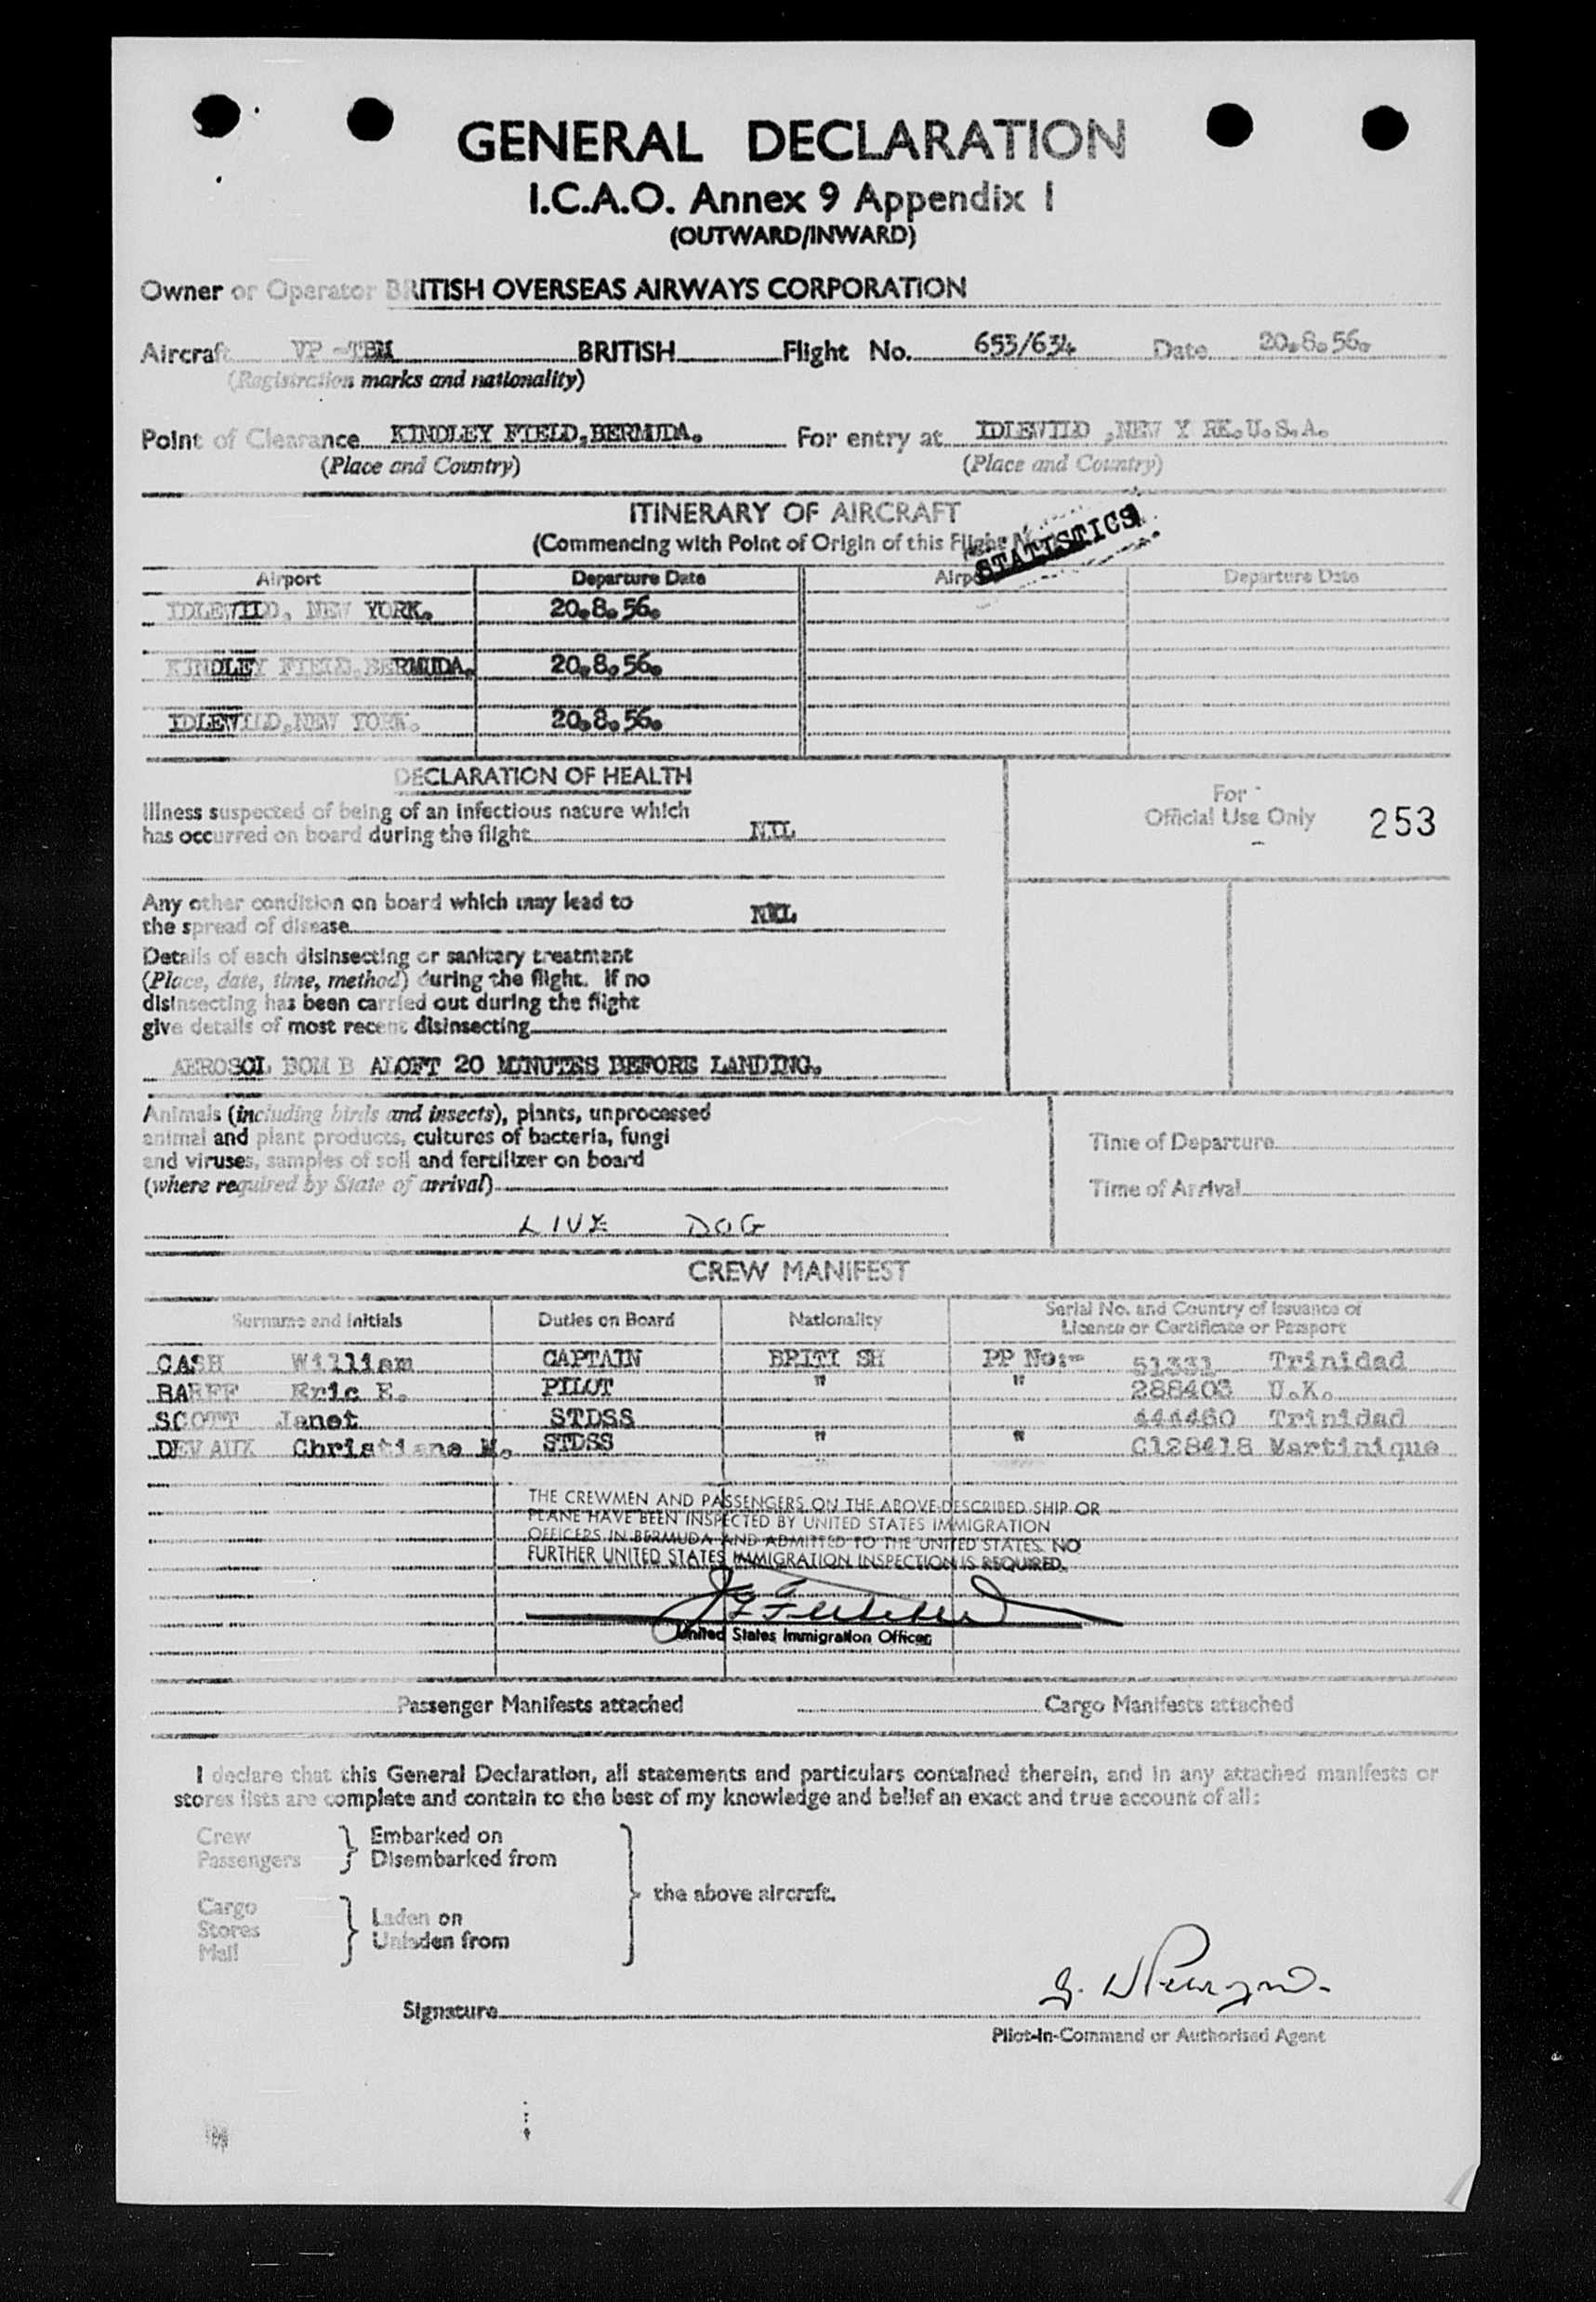 GENERAL DECLARATION
I.C.A.O. Annex 9 Appendix 1
(OUTWARD/INWARD)
Owner or Operator BRITISH OVERSEAS AIRWAYS CORPORATION
Aircraft VP -TBM BRITISH Flight No. 653/634 Date 20.8.56.
(Registration marks and nationality)
Point of Clearance KINDLEY FIELD,BERMUDA. For entry at IDLEWILD ,NEW Y RK.U.S.A.
(Place and Country) (Place and Country)
ITINERARY OF AIRCRAFT
(Commencing with Point of Origin of this Flight
STATISTICS
Airport Departure Date Airport Departure Date
IDLEWILD, NEW YORK. 20.8.56.
KINDLEY FIELD,BERMUDA. 20.8.56.
IDLEWILD,NEW YORK. 20.8.56.
DECLARATION OF HEALTH
Illness suspected of being of an infectious nature which
has occurred on board during the flight NIL
For
Official Use Only 253
Any other condition on board which may lead to
the spread of disease NIL
Details of each disinsecting or sanitary treatment
(Place, date, time, method) during the flight. If no
disinsecting has been carried out during the flight
give details of most recent disinsecting
AEROSOL BOM B ALOFT 20 MINUTES BEFORE LANDING.
Animals (including birds and insects), plants, unprocessed
animal and plant products, cultures of bacteria, fungi
and viruses, samples of soil and fertilizer on board
(where required by State of arrival)
Time of Departure
Time of Arrival
LIVE DOG
CREW MANIFEST
Surname and Initials Duties on Board Nationality Serial No. and Country of Issuance of
Licence or Certificate or Passport
CASH William CAPTAIN BRITI SH PP No:- 51331 Trinidad
BARFF Eric E. PILOT " " 288403 U.K.
SCOTT Janet STDSS 444460 Trinidad
DEV AUX Christiane M. STDSS " " C128418 Martinique
THE CREWMEN AND PASSENGERS ON THE ABOVE-DESCRIBED SHIP OR
PLANE HAVE BEEN INSPECTED BY UNITED STATES IMMIGRATION
OFFICERS IN BERMUDA AND ADMITTED TO THE UNITED STATES. NO
FURTHER UNITED STATES IMMIGRATION INSPECTION IS REQUIRED.
United States Immigration Officer
Passenger Manifests attached Cargo Manifests attached
I declare that this General Declaration, all statements and particulars contained therein, and in any attached manifests or
stores lists are complete and contain to the best of my knowledge and belief an exact and true account of all:
Crew
Passengers
Embarked on
Disembarked from
the above aircraft.
Cargo
Stores
Mail
Laden on
Unladen from
Signature
Pilot-in-Command or Authorised Agent